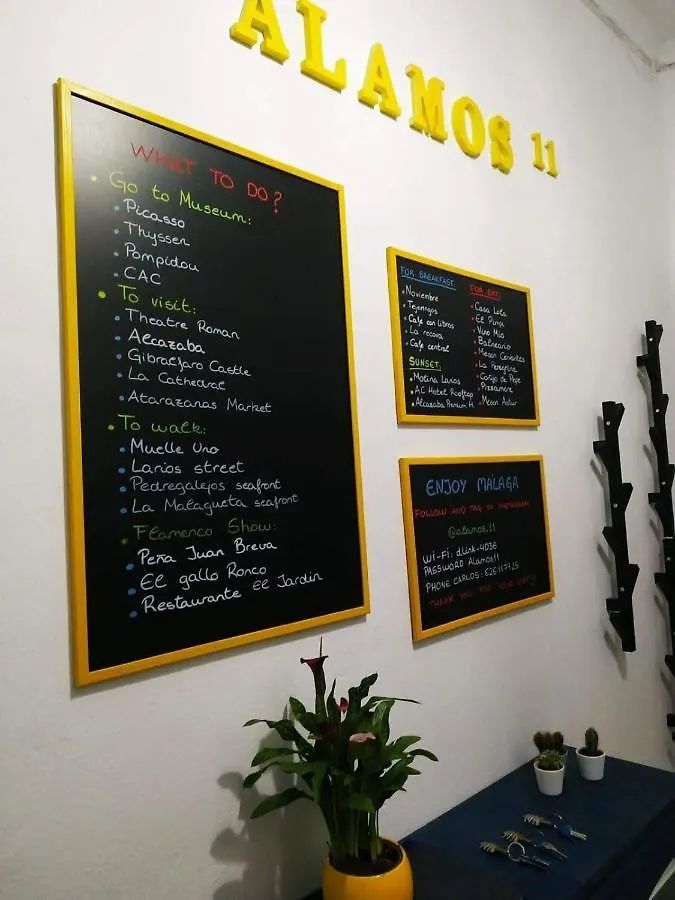 ALAMOS 11
WHAT TO DO?
• Go to Museum:
• Picasso
• Thyssen
• Pompidou
• CAC
• To visit:
• Theatre Roman
• Alcazaba
• Gibralfaro Castle
• La Cathedral
• Atarazanas Market
• To walk:
• Muelle Uno
• Larios street
• Pedregalejos seafront
• La Malagueta seafront
• Flamenco Show:
• Peña Juan Breva
• El gallo Ronco
• Restaurante El Jardin
FOR BREAKFAST:
• Noviembre
• Tejeringos
• Cafe con libros
• La recova
• Cafe central
SUNSET:
• Molina Larios
• AC Hotel Rooftop
• Alcazaba Premium H.
FOR EAT:
• Casa Lola
• El Pimpi
• Vino Mio
• Balneario
• Meson Cervantes
• La Peregrina
• Cortijo de Pepe
• Pizzamore
• Meson Astur
ENJOY MÁLAGA
FOLLOW AND TAG IN INSTAGRAM
@alamos.11
Wi-Fi: dlink-4036
PASSWORD Alamos11
PHONE CARLOS:
THANK YOU FOR YOUR